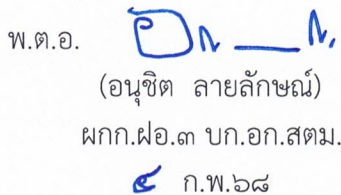 พ.ต.อ.
(อนุชิต ลายลักษณ์)
ผกก.ฝอ.๓ บก.อก.สตม.
๕ ก.พ.๖๘